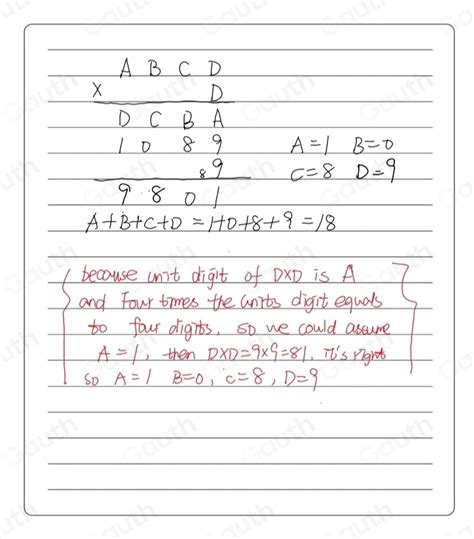 A B C D
X D
D C B A
1 0 8 9 A=1 B=0
8 9 C=8 D=9
9 8 0 1
A+B+C+D =1+0+8+9=18
because unit digit of D×D is A
and Four times the units digit equals
to four digits, so we could assume
A=1, then D×D=9×9=81. It's right
so A=1 B=0, C=8, D=9